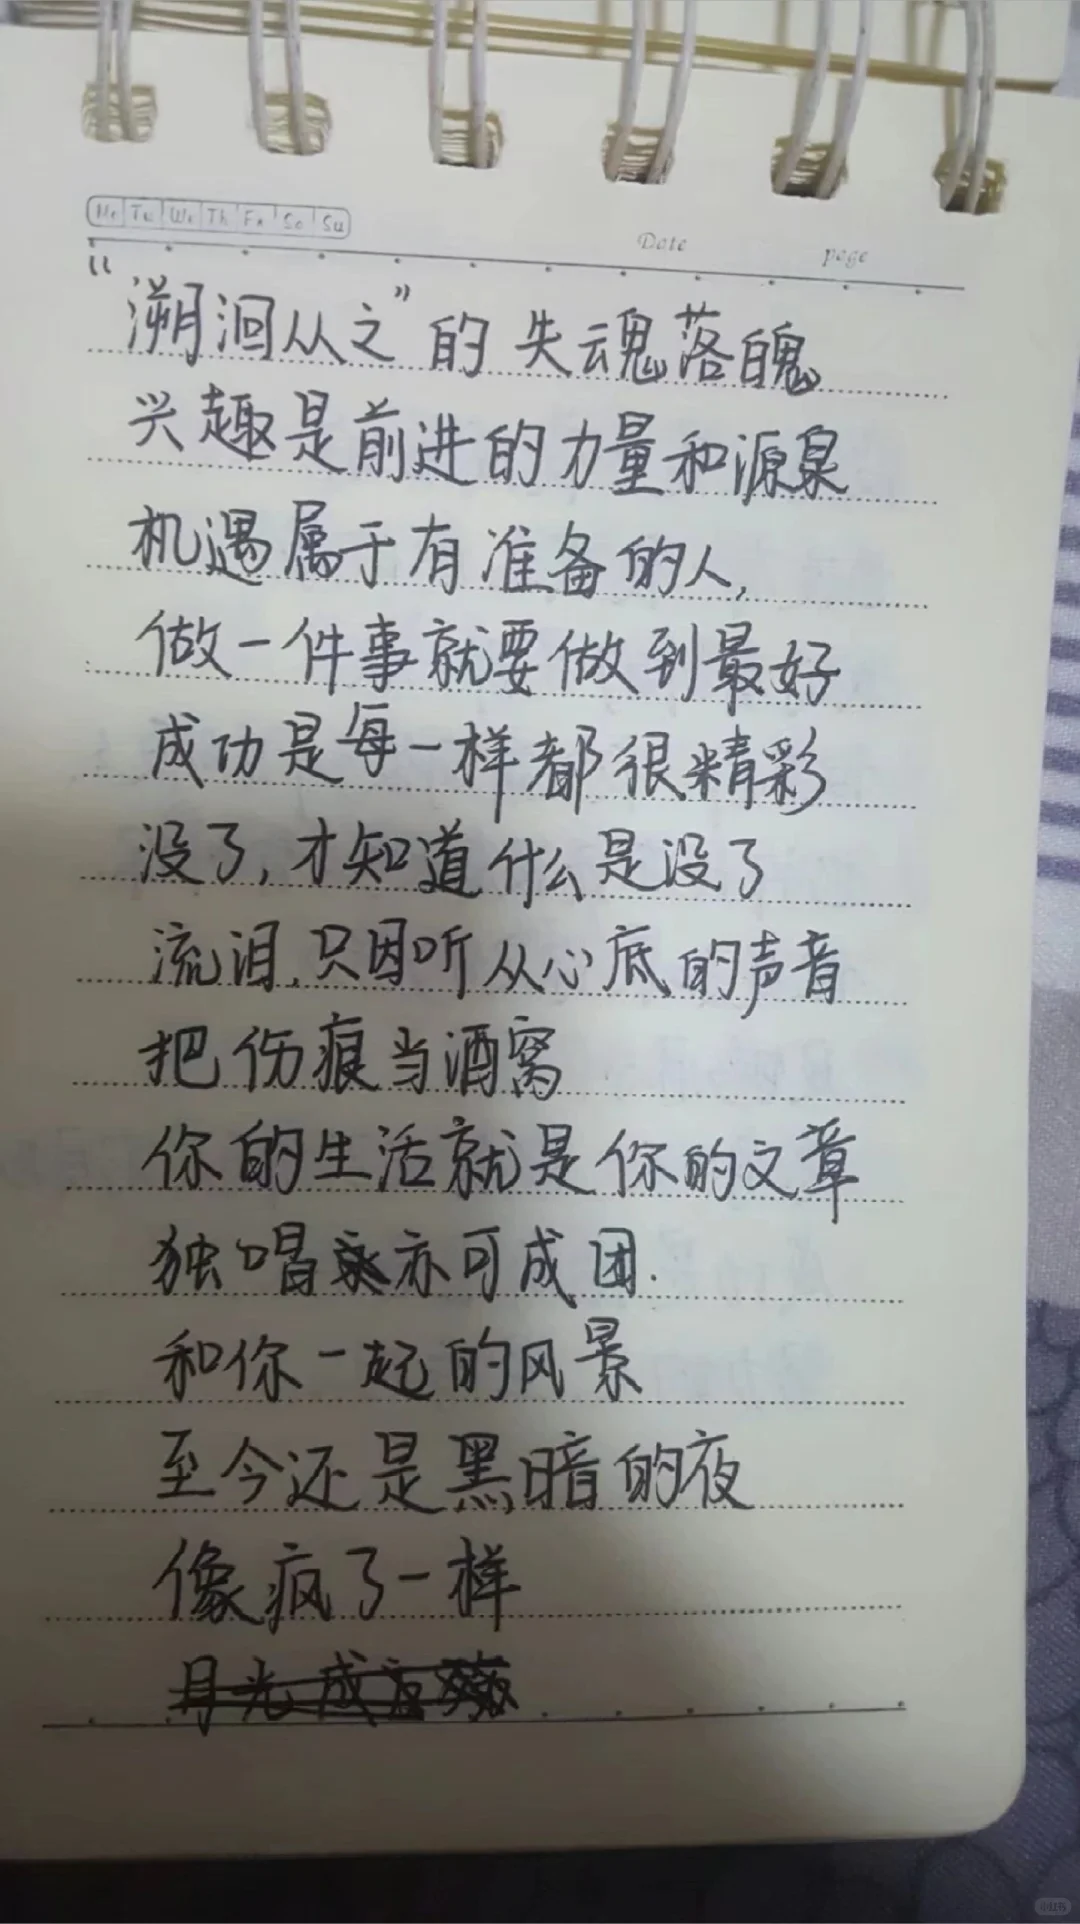 Mo Tu We Th Fr Sa Su
Date page
“溯洄从之”的失魂落魄
兴趣是前进的力量和源泉
机遇属于有准备的人,
做一件事就要做到最好
成功是每一样都很精彩
没了,才知道什么是没了
流泪,只因听从心底的声音
把伤痕当酒窝
你的生活就是你的文章
独唱亦可成团.
和你一起的风景
至今还是黑暗的夜
像疯了一样
月光成
小红书